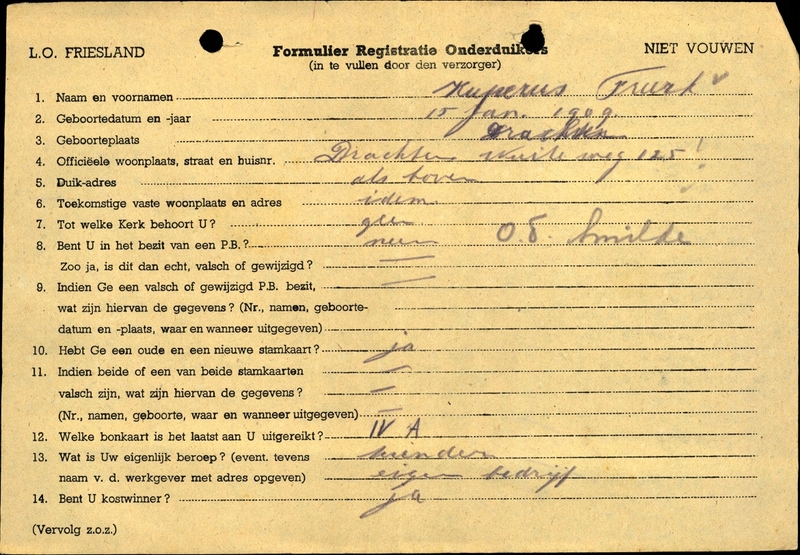 L.O. FRIESLAND
Formulier Registratie Onderduikers
NIET VOUWEN
(in te vullen door den verzorger)
1. Naam en voornamen Kuperus
2. Geboortedatum en -jaar 15 Jan. 1909.
3. Geboorteplaats Drachten
4. Officiëele woonplaats, straat en huisnr. Drachten weg 125!
5. Duik-adres als boven
6. Toekomstige vaste woonplaats en adres idem
7. Tot welke Kerk behoort U? geen
8. Bent U in het bezit van een P.B.? neen O.D. Smilde
Zoo ja, is dit dan echt, valsch of gewijzigd? —
9. Indien Ge een valsch of gewijzigd P.B. bezit, —
wat zijn hiervan de gegevens? (Nr., namen, geboorte-
datum en -plaats, waar en wanneer uitgegeven)
10. Hebt Ge een oude en een nieuwe stamkaart? ja
11. Indien beide of een van beide stamkaarten —
valsch zijn, wat zijn hiervan de gegevens? —
(Nr., namen, geboorte, waar en wanneer uitgegeven) —
12. Welke bonkaart is het laatst aan U uitgereikt? IV A
13. Wat is Uw eigenlijk beroep? (event. tevens
naam v. d. werkgever met adres opgeven) eigen bedrijf
14. Bent U kostwinner? ja
(Vervolg z.o.z.)